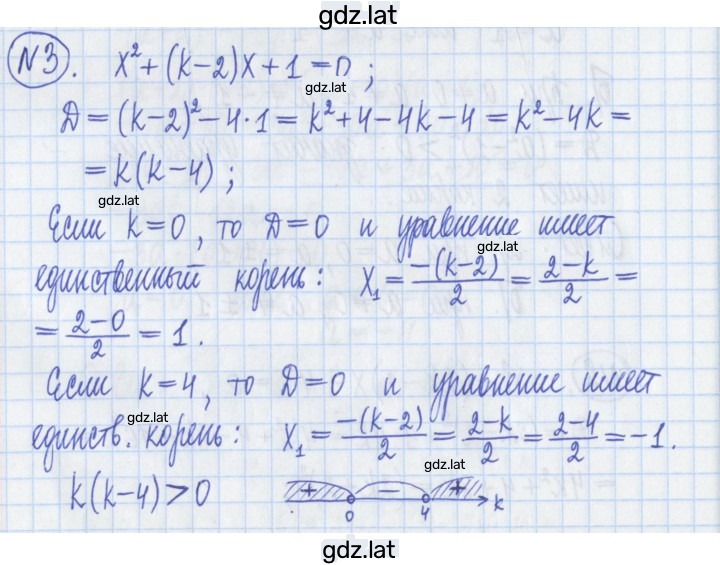 gdz.lat
№3. x² + (k−2)x + 1 = 0 ;
gdz.lat
D = (k−2)² − 4·1 = k² + 4 − 4k − 4 = k² − 4k =
= k(k−4) ;
gdz.lat
Если k=0, то D=0 и уравнение имеет
gdz.lat
единственный корень: x₁ = −(k−2)/2 = (2−k)/2 =
= (2−0)/2 = 1.
gdz.lat
Если k=4, то D=0 и уравнение имеет
gdz.lat
единств. корень: x₁ = −(k−2)/2 = (2−k)/2 = (2−4)/2 = −1.
gdz.lat
k(k−4)>0 + − + 
0 4 k
gdz.lat